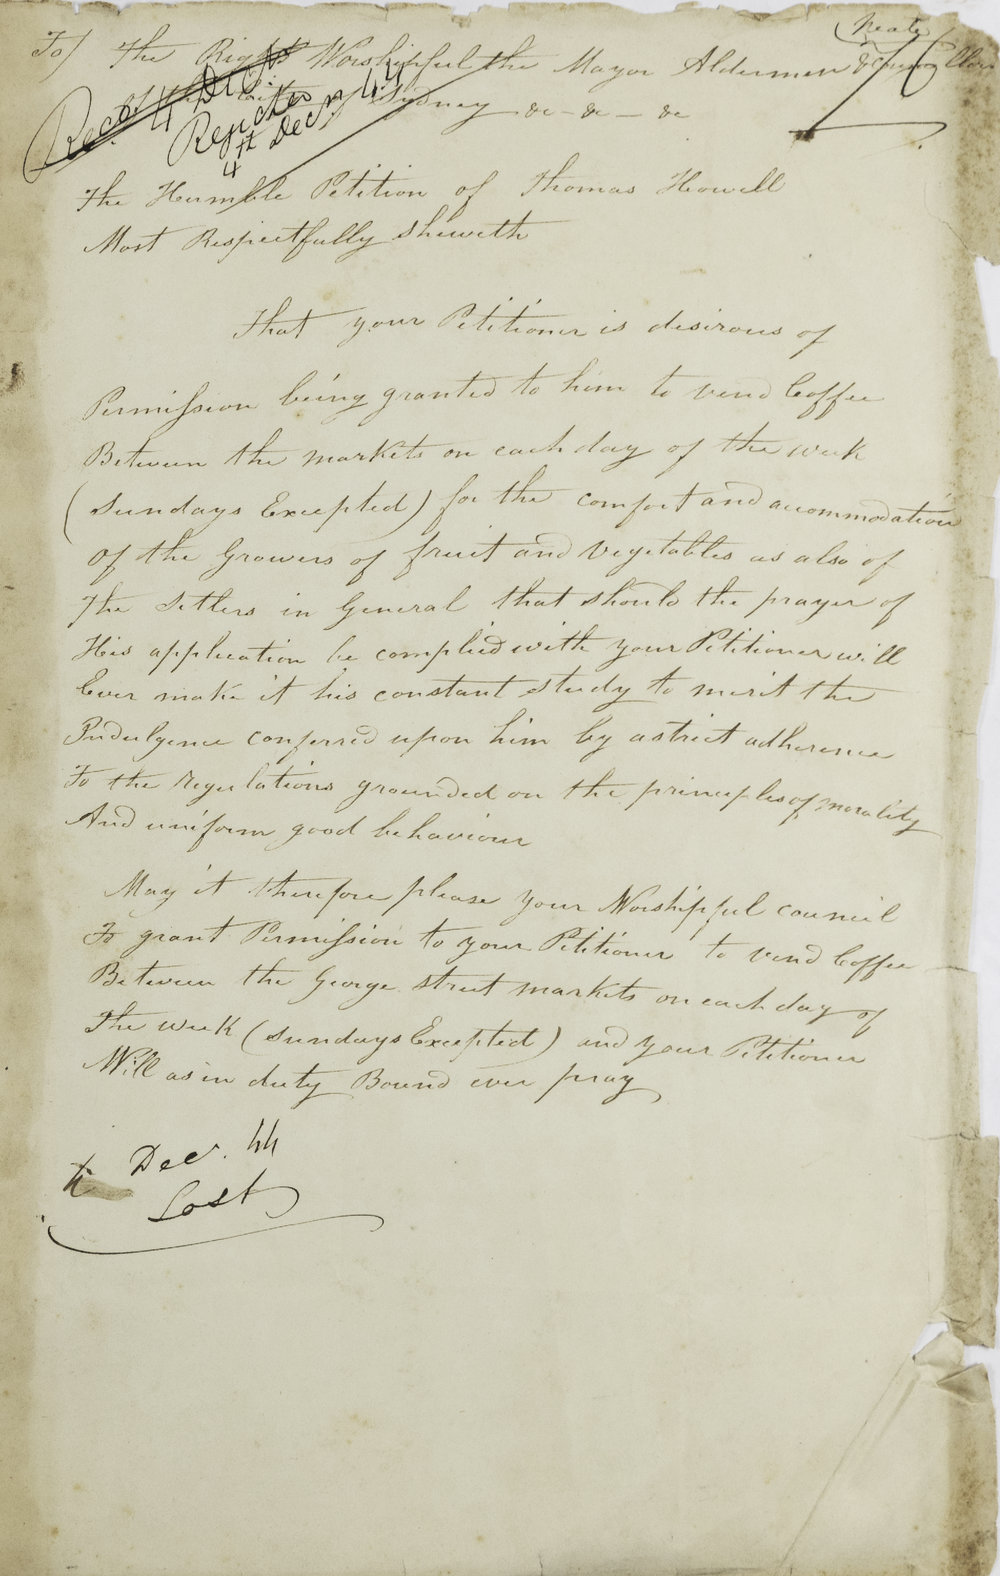 To/ The Right Worshipful the Mayor Aldermen & Councillors
of the City of Sydney &c - &c - &c
Recd. 4 Decr
Rejected
4th Decr 44
The Humble Petition of Thomas Howell
Most Respectfully Sheweth
That your Petitioner is desirous of
Permission being granted to him to vend Coffee
Between the markets on each day of the week
(Sundays Excepted) for the comfort and accommodation
Of the Growers of fruit and Vegetables as also of
The Setlers in General that should the prayer of
His application be complied with your Petitioner will
Ever make it his constant study to merit the
Indulgence conferred upon him by a strict adherence
To the regulations grounded on the principles of morality
And uniform good behaviour
May it therefore please your Worshipful council
To grant Permission to your Petitioner to vend Coffee
Between the George Street markets on each day of
The week (Sundays Excepted) and your Petitioner
Will as in duty Bound ever pray
4 Dec. 44
Lost